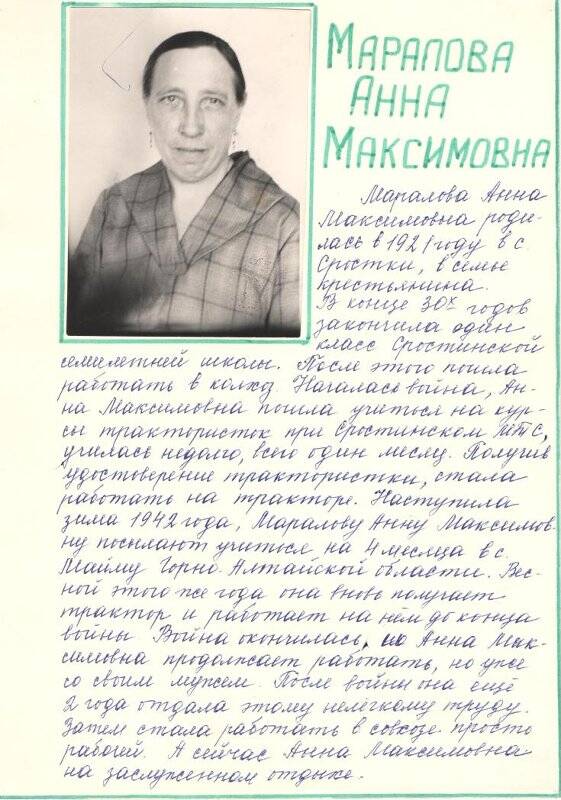 МАРАЛОВА
АННА
МАКСИМОВНА
Маралова Анна
Максимовна роди-
лась в 1921 году в с.
Сростки, в семье
крестьянина.
В конце 30х годов
закончила один
класс Сростинской
семилетней школы. После этого пошла
работать в колхоз Началась война, Ан-
на Максимовна пошла учиться на кур-
сы трактористок при Сростинском МТС,
училась недолго, всего один месяц. Получив
удостоверение трактористки, стала
работать на тракторе. Наступила
зима 1942 года, Маралову Анну Максимов-
ну посылают учиться на 4 месяца в с.
Майму Горно Алтайской области. Вес-
ной этого же года она вновь получает
трактор и работает на нём до конца
войны Война окончилась, но Анна Мак-
симовна продолжает работать, но уже
со своим мужем. После войны она ещё
2 года отдала этому нелегкому труду.
Затем стала работать в совхозе просто
рабочей. А сейчас Анна Максимовна
на заслуженном отдыхе.